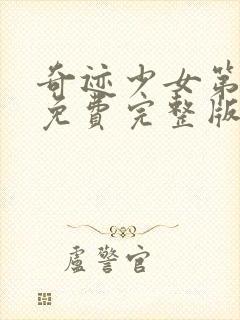 奇迹少女第
免費完整版
盧警官